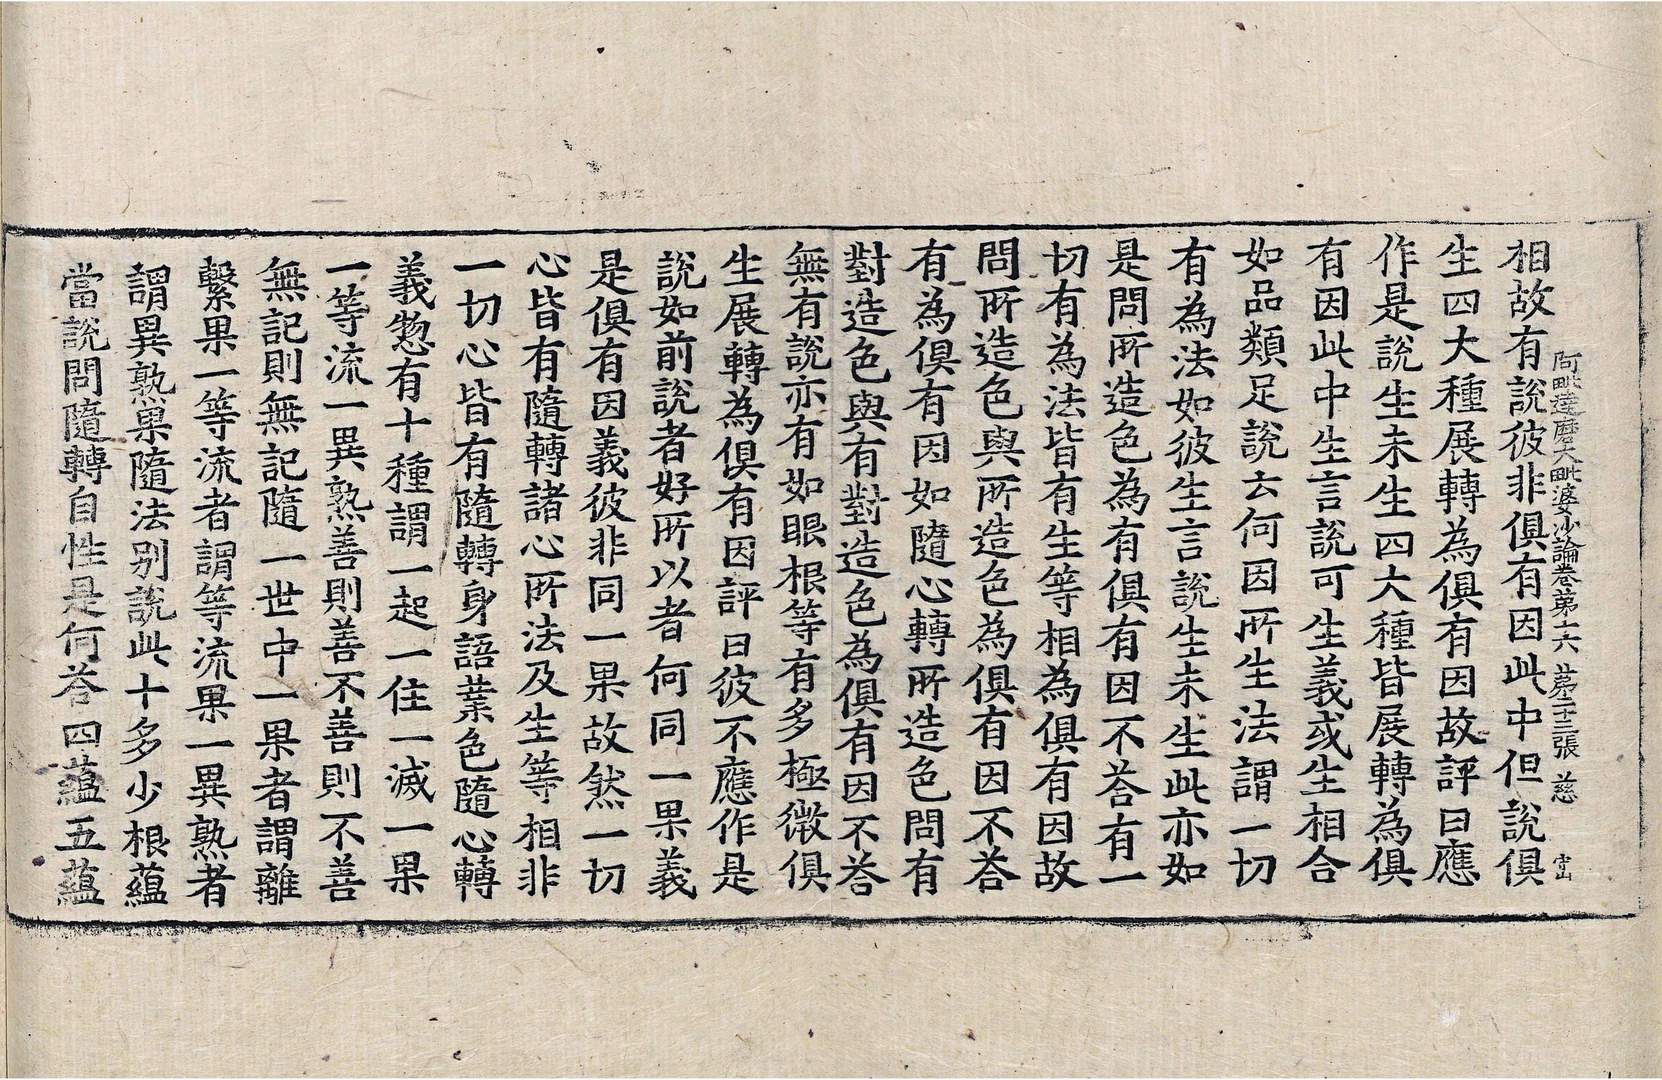 阿毗達磨大毗婆沙論卷第十六 第二十三張 慈
相故有說彼非俱有因此中但說俱
生四大種展轉為俱有因故評曰應
作是說生未生四大種皆展轉為俱
有因此中生言說可生義或生相合
如品類足說云何因所生法謂一切
有為法如彼生言說生未生此亦如
是問所造色為有俱有因不荅有一
切有為法皆有生等相為俱有因故
問所造色與所造色為俱有因不荅
有為俱有因如隨心轉所造色問有
對造色與有對造色為俱有因不荅
無有說亦有如眼根等有多極微俱
生展轉為俱有因評曰彼不應作是
說如前說者好所以者何同一果義
是俱有因義彼非同一果故然一切
心皆有隨轉諸心所法及生等相非
一切心皆有隨轉身語業色隨心轉
義惣有十種謂一起一住一滅一果
一等流一異熟善則善不善則不善
無記則無記隨一世中一果者謂離
繫果一等流者謂等流果一異熟者
謂異熟果隨法別說此十多少根蘊
當說問隨轉自性是何荅四蘊五蘊